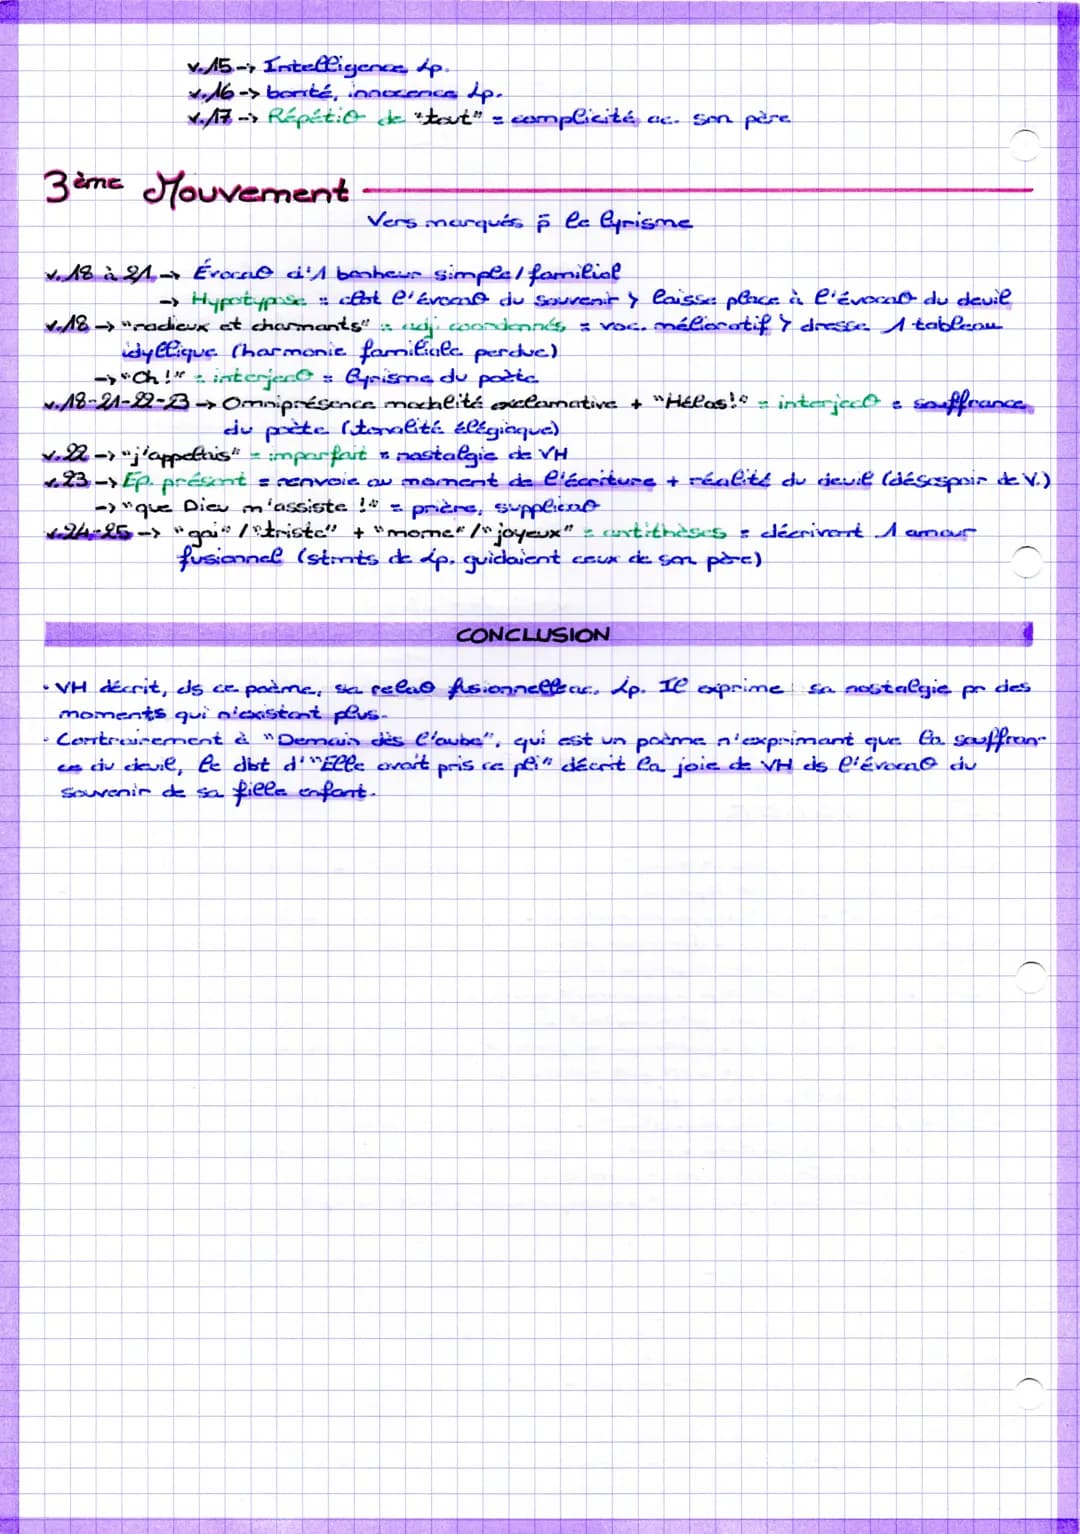 v.15 → Intelligence Lp.
v.16 → bonté, innocence Lp.
v.17 → Répétit° de "tout" = complicité ac. son père
3ème Mouvement
Vers marqués p̄ le lyrisme
v.18 à 21 → Évocat° d'1 bonheur simple/familial
→ Hypotypose = c'est l'évocat° du souvenir > laisse place à l'évocat° du deuil
v.18 → "radieux et charmants" = adj. coordonnés, = voc. mélioratif > dresse 1 tableau
idyllique (harmonie familiale perdue)
→ "Oh !" = interject° = lyrisme du poète
v.18-21-22-23 → Omniprésence modalité exclamative + "Hélas!" = interject° = souffrance
du poète (tonalité élégiaque)
v.22 → "j'appelais" = imparfait = nostalgie de VH
v.23 → Ep. présent = renvoie au moment de l'écriture + réalité du deuil (désespoir de V.)
→ "que Dieu m'assiste !" = prière, supplicat°
v.24-25 → "gai" / "triste" + "morne" / "joyeux" = antithèses = décrivent 1 amour
fusionnel (stmts de Lp. guidaient ceux de son père)
CONCLUSION
• VH décrit, ds ce poème, sa relat° fusionnelle ac. Lp. Il exprime sa nostalgie pr des
moments qui n'existent plus.
• Contrairement à "Demain dès l'aube", qui est un poème n'exprimant que la souffran-
ce du deuil, le dbt d'"Elle avait pris ce pli" décrit la joie de VH ds l'évocat° du
souvenir de sa fille enfant.